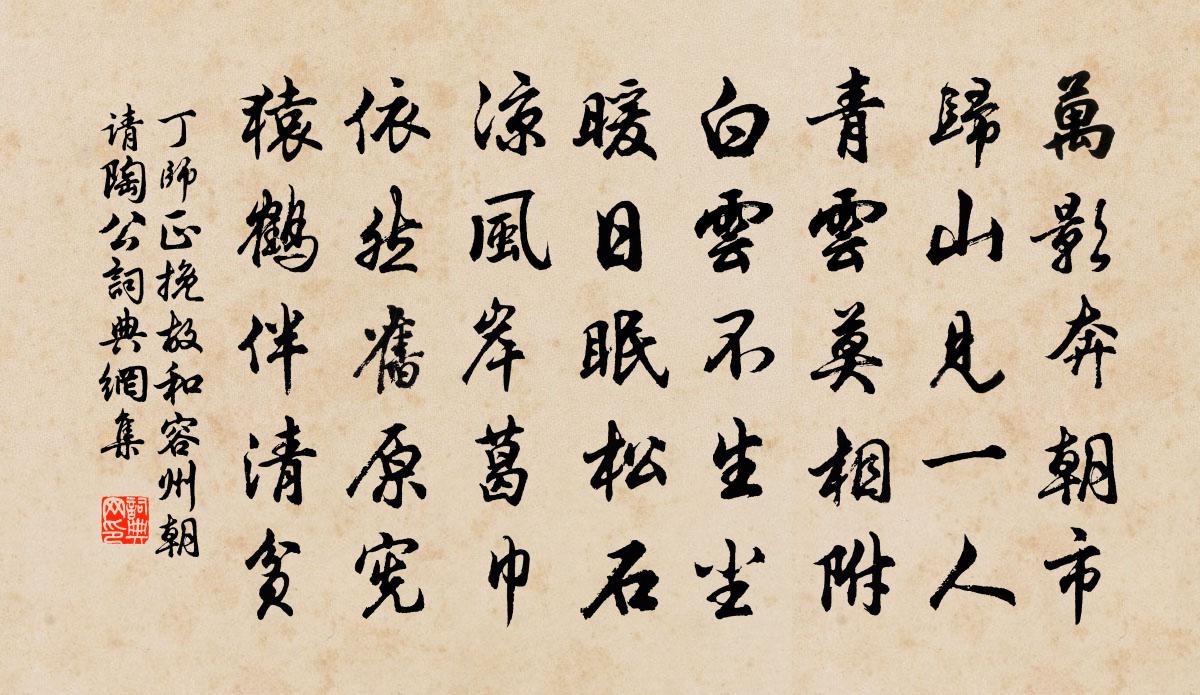 萬影奔朝市
歸山見一人
青雲莫相附
白雲不生尘
暖日眠松石
涼風岸葛巾
依然舊原宪
猿鶴伴清贫
丁師正挽故和容州朝
请陶公詞典網集
詞典
网印